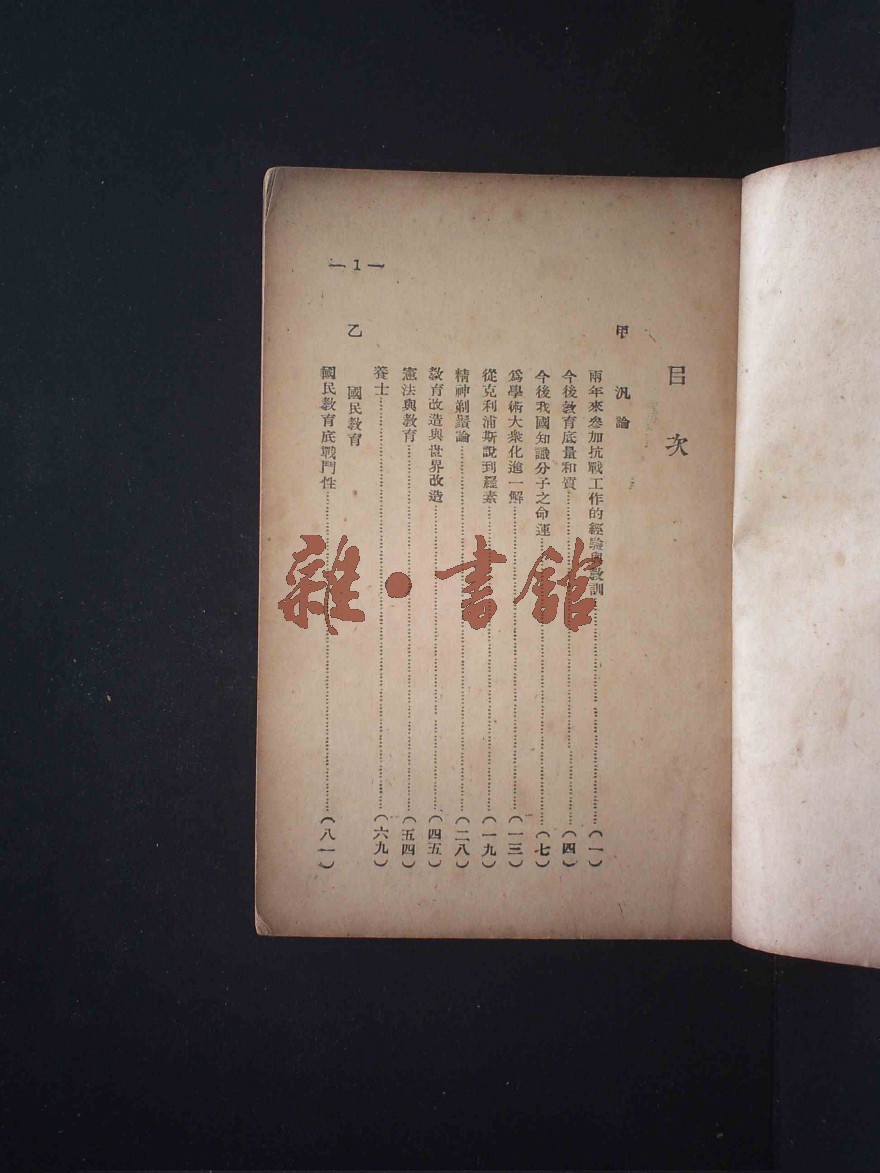 目次
甲 汎論
兩年來參加抗戰工作的經驗與敎訓……(一)
今後敎育底量和質……(四)
今後我國知識分子之命運……(七)
爲學術大衆化進一解……(一三)
從克利浦斯說到羅素……(一九)
精神剃鬚論……(二八)
敎育改造與世界改造……(四五)
憲法與敎育……(五四)
養士……(六九)
乙 國民敎育
國民敎育底戰鬥性……(八一)
— 1 —
雜·書館